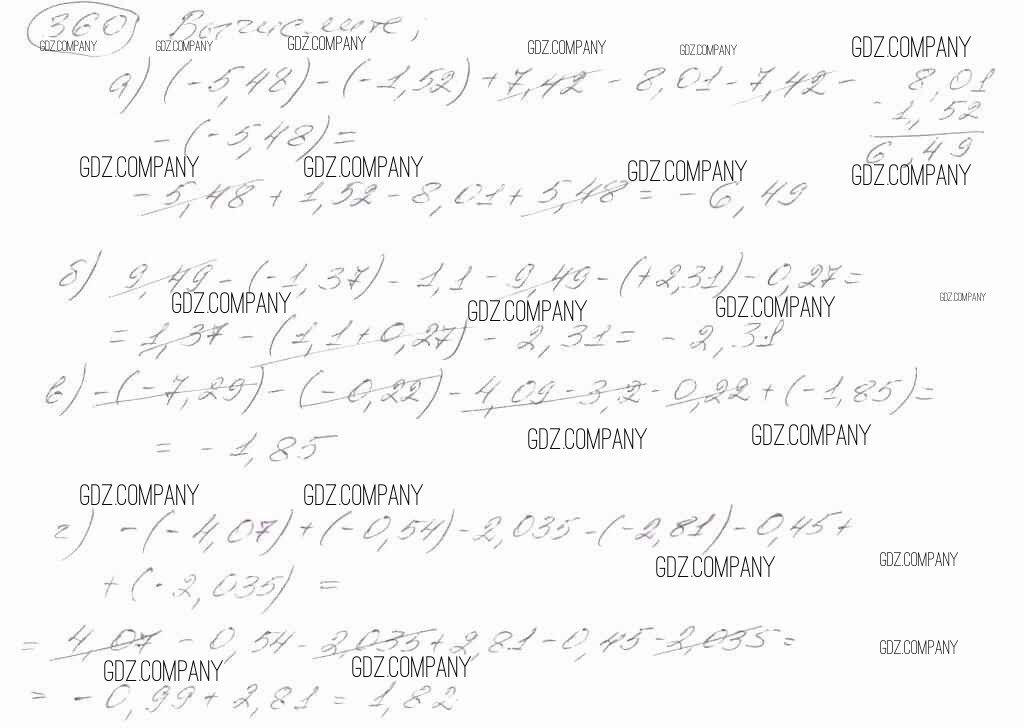 360 Вычислите;
GDZ.COMPANY GDZ.COMPANY GDZ.COMPANY GDZ.COMPANY GDZ.COMPANY GDZ.COMPANY
а) (-5,48) - (-1,52) + 7,42 - 8,01 - 7,42 -
8,01
- 1,52
6,49
- (-5,48) =
GDZ.COMPANY GDZ.COMPANY GDZ.COMPANY GDZ.COMPANY
- 5,48 + 1,52 - 8,01 + 5,48 = - 6,49
б) 9,49 - (-1,37) - 1,1 - 9,49 - (+2,31) - 0,27 =
GDZ.COMPANY GDZ.COMPANY GDZ.COMPANY GDZ.COMPANY
= 1,37 - (1,1 + 0,27) - 2,31 = - 2,31
в) - (-7,29) - (-0,22) - 4,09 - 3,2 - 0,22 + (-1,85) =
= - 1,85
GDZ.COMPANY GDZ.COMPANY
GDZ.COMPANY GDZ.COMPANY
г) - (-4,07) + (-0,54) - 2,035 - (-2,81) - 0,45 +
GDZ.COMPANY GDZ.COMPANY
+ (-2,035) =
= 4,07 - 0,54 - 2,035 + 2,81 - 0,45 - 2,035 =
GDZ.COMPANY GDZ.COMPANY GDZ.COMPANY
= - 0,99 + 2,81 = 1,82